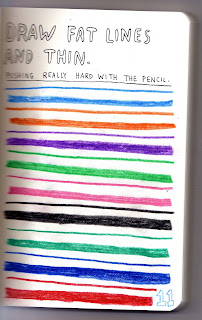 DRAW FAT LINES
AND THIN.
PUSHING REALLY HARD WITH THE PENCIL.
11